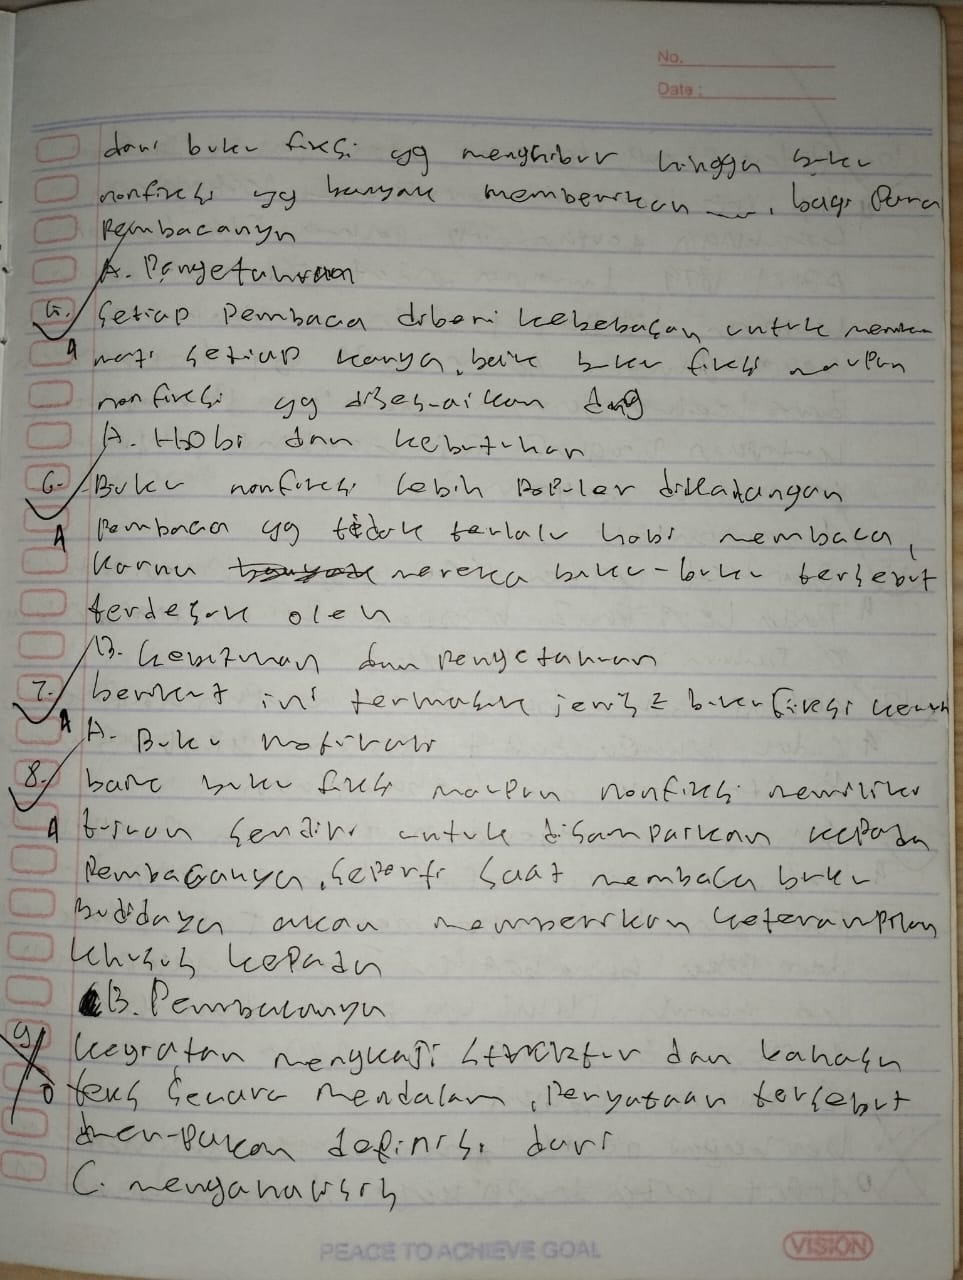 No.
Date :
dari buku fiksi yg menghibur hingga buku
nonfiksi yg banyak memberikan __, bagi para
pembacanya
A. Pengetahuan
5. Setiap pembaca diberi kebebasan untuk
A setiap karya, baik buku fiksi maupun
nonfiksi yg disesuaikan dng
A. Hobi dan kebutuhan
6. Buku nonfiksi lebih populer dikalangan
A pembaca yg tidak terlalu hobi membaca,
karna mereka buku-buku tersebut
terdesak oleh
B. kebutuhan dan pengetahuan
7. berikut ini termasuk jenis2 buku fiksi
A A. Buku motivasi
8. baik buku fiksi maupun nonfiksi memiliki
A tujuan sendiri untuk disampaikan kepada
pembacanya, seperti saat membaca buku
budidaya akan memberikan keterampilan
khusus kepada
B. Pembacanya
9 kegiatan mengkaji struktur dan bahasa
0 teks secara mendalam, pernyataan tersebut
merupakan definisi dari
C. menganalisis
PEACE TO ACHIEVE GOAL
VISION